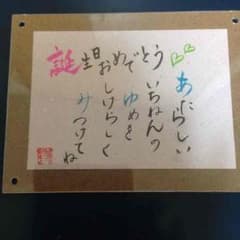 誕生日おめでとう
あたらしい
いちねんの
ゆめを
らしく
みつけてね